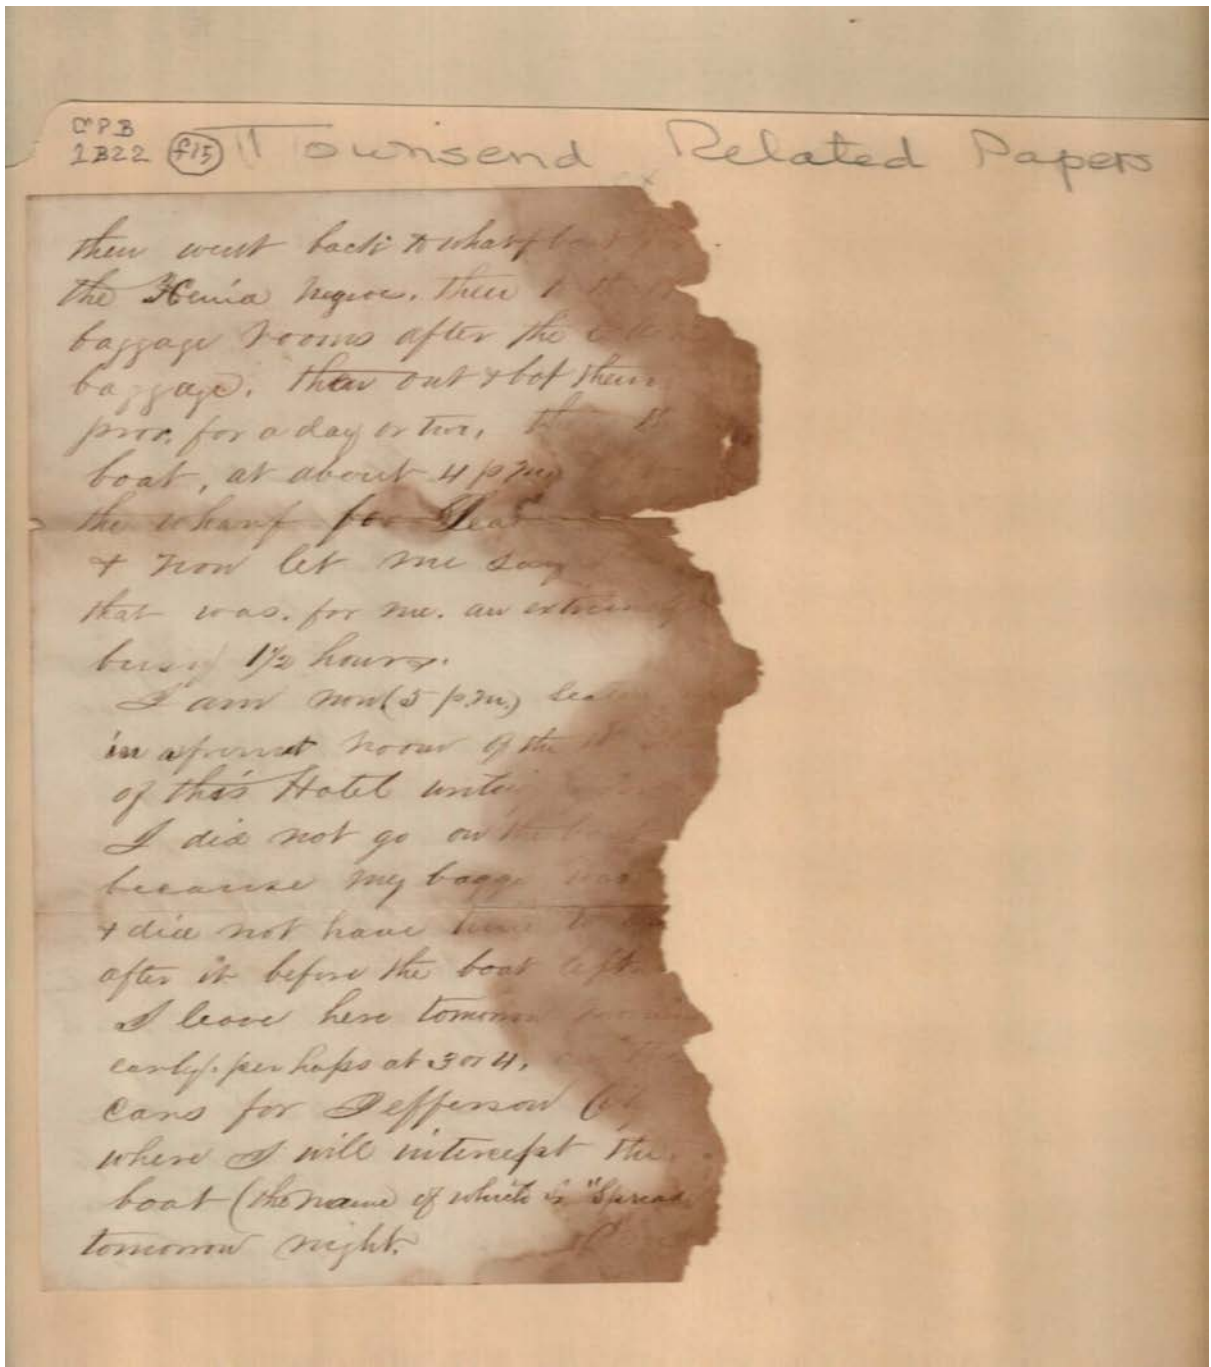 CPB
1B22 f15 Townsend Related Papers
then went back to wharf boat
the Xenia Negroes. then
baggage rooms after the
baggage. then out & bot them
prov. for a day or two,
boat, at about 4 p.m.
the wharf for Lea
& now let me say
that was. for me. an extremely
busy 1½ hours.
I am now (5 p.m.)
in a front room of the
of this Hotel
I did not go on the boat
because my bagg
& did not have time to
after it before the boat left
I leave here tomorrow
early. perhaps at 3 or 4,
cars for Jefferson City
where I will intercept the
boat (the name of which is "Spread
tomorrow night.